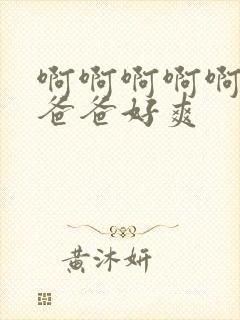 啊啊啊啊啊
爸爸好爽
黄沐妍